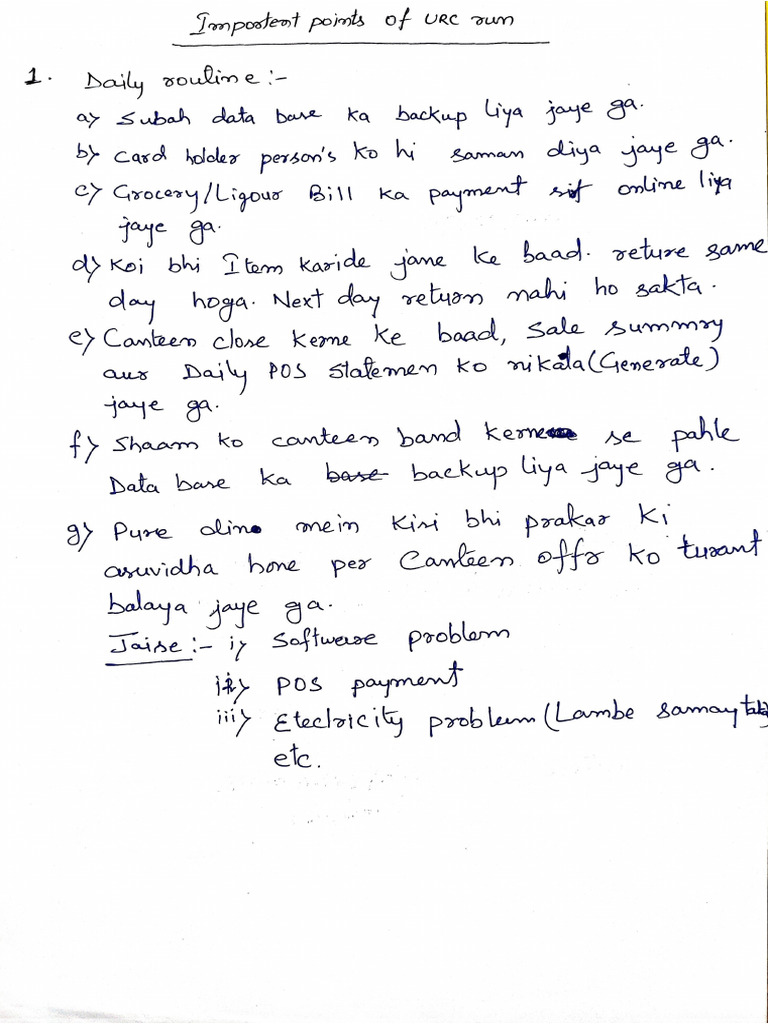 Importent points of URC run
1. Daily routine :-
a) Subah data base ka backup liya jaye ga.
b) Card holder person's ko hi saman diya jaye ga.
c) Grocery/Ligour Bill ka payment sirf online liya
jaye ga.
d) Koi bhi Item karide jane ke baad. reture same
day hoga. Next day return nahi ho sakta.
e) Canteen close kerne ke baad, Sale summry
aur Daily POS statemen ko nikala (Generate)
jaye ga.
f) Shaam ko canteen band kerne se pahle
Data base ka base backup liya jaye ga.
g) Pure din mein kisi bhi prakar ki
asuvidha hone per Canteen offr ko turant
balaya jaye ga.
Jaise :- i) Software problem
ii) POS payment
iii) Etectricity problem (Lambe samay tak)
etc.